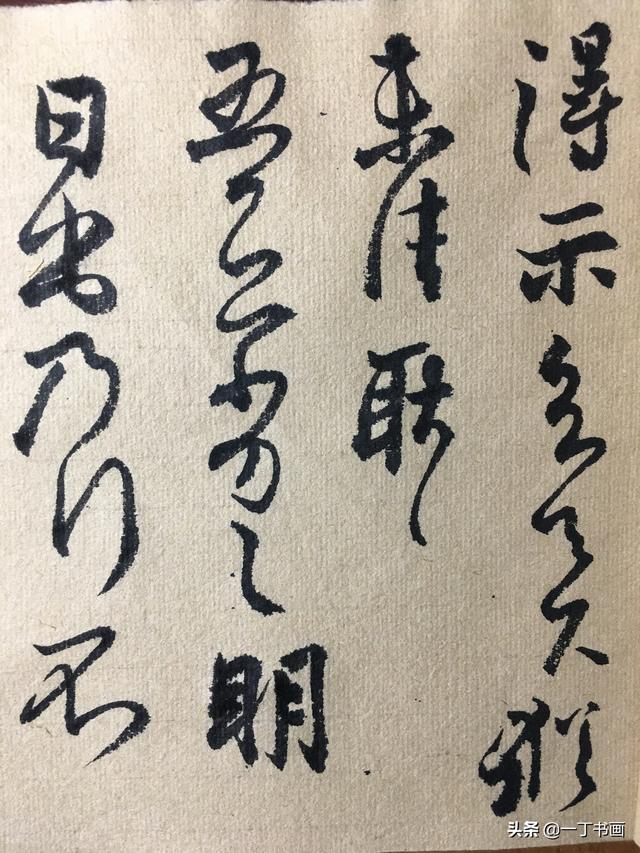 得示知足下猶
未佳耿々
吾亦劣々明
日出乃行不
头条 @一丁书画